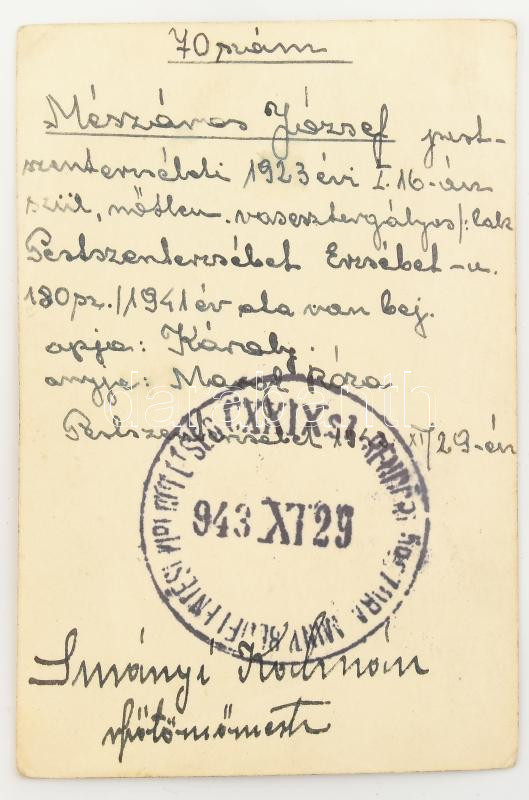 70 szám
Mészáros József pest-
szenterzsébeti 1923 évi I. 16-án
szül, nőtlen vasesztergályos /: lak
Pestszenterzsébet Erzsébet-u.
180 sz. / 1941 év óta van bej.
apja: Károly
anyja: Róza
Pestszenterzsébet XI/29-én
CXXIX.
943 XI 29
Kálmán